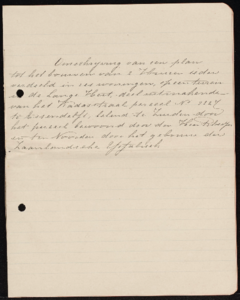 Omschrijving van een plan
tot het bouwen van 2 huizen ieder
verdeeld in zes woningen, op een terrein
a/d de Lange Hout, deel uitmakende
van het Kadastraal perceel No 2227
te Assendelft. Belend te Zuiden door
het perceel bewoond door den Heer
en te Noorden door het gebouw der
Zaanlandsche IJsfabriek